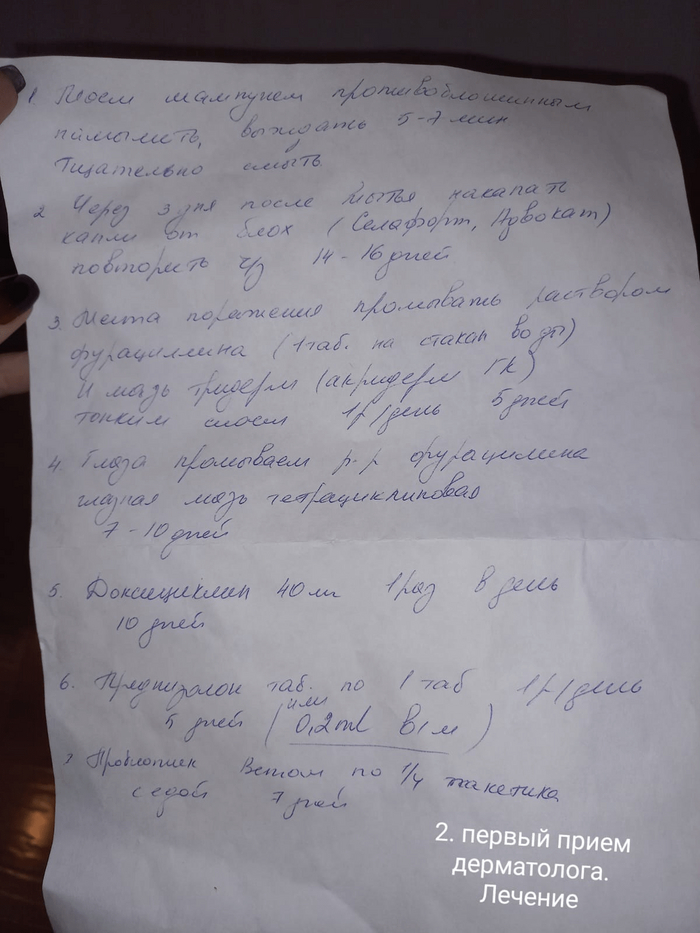 1 Моем шампунем противоблошинным
намылить, выждать 5-7 мин
Тщательно смыть
2 Через 3 дня после мытья накапать
капли от блох (Селафорт, Адвокат)
повторить чз 14-16 дней
3. Места поражения промывать раствором
фурациллина (1таб. на стакан воды)
И мазь тридерм (акридерм ГК)
тонким слоем 1р/день 5 дней
4. Глаза промываем р-р фурацилина
глазная мазь тетрациклиновая
7-10 дней
5. Доксициклин 40 мг 1 раз в день
10 дней
6. Преднизолон таб. по 1 таб 1р/день
5 дней (или 0,2ml в/м)
7 Пробиотик Ветом по 1/4 пакетика
с едой 7 дней
2. первый прием
дерматолога.
Лечение